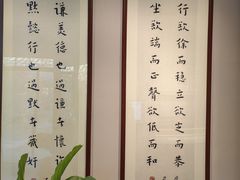 行欲徐而穩立欲定而恭
坐欲端而正聲欲低而和
謙美德也過謙者懷詐
默懿行也過默者藏奸